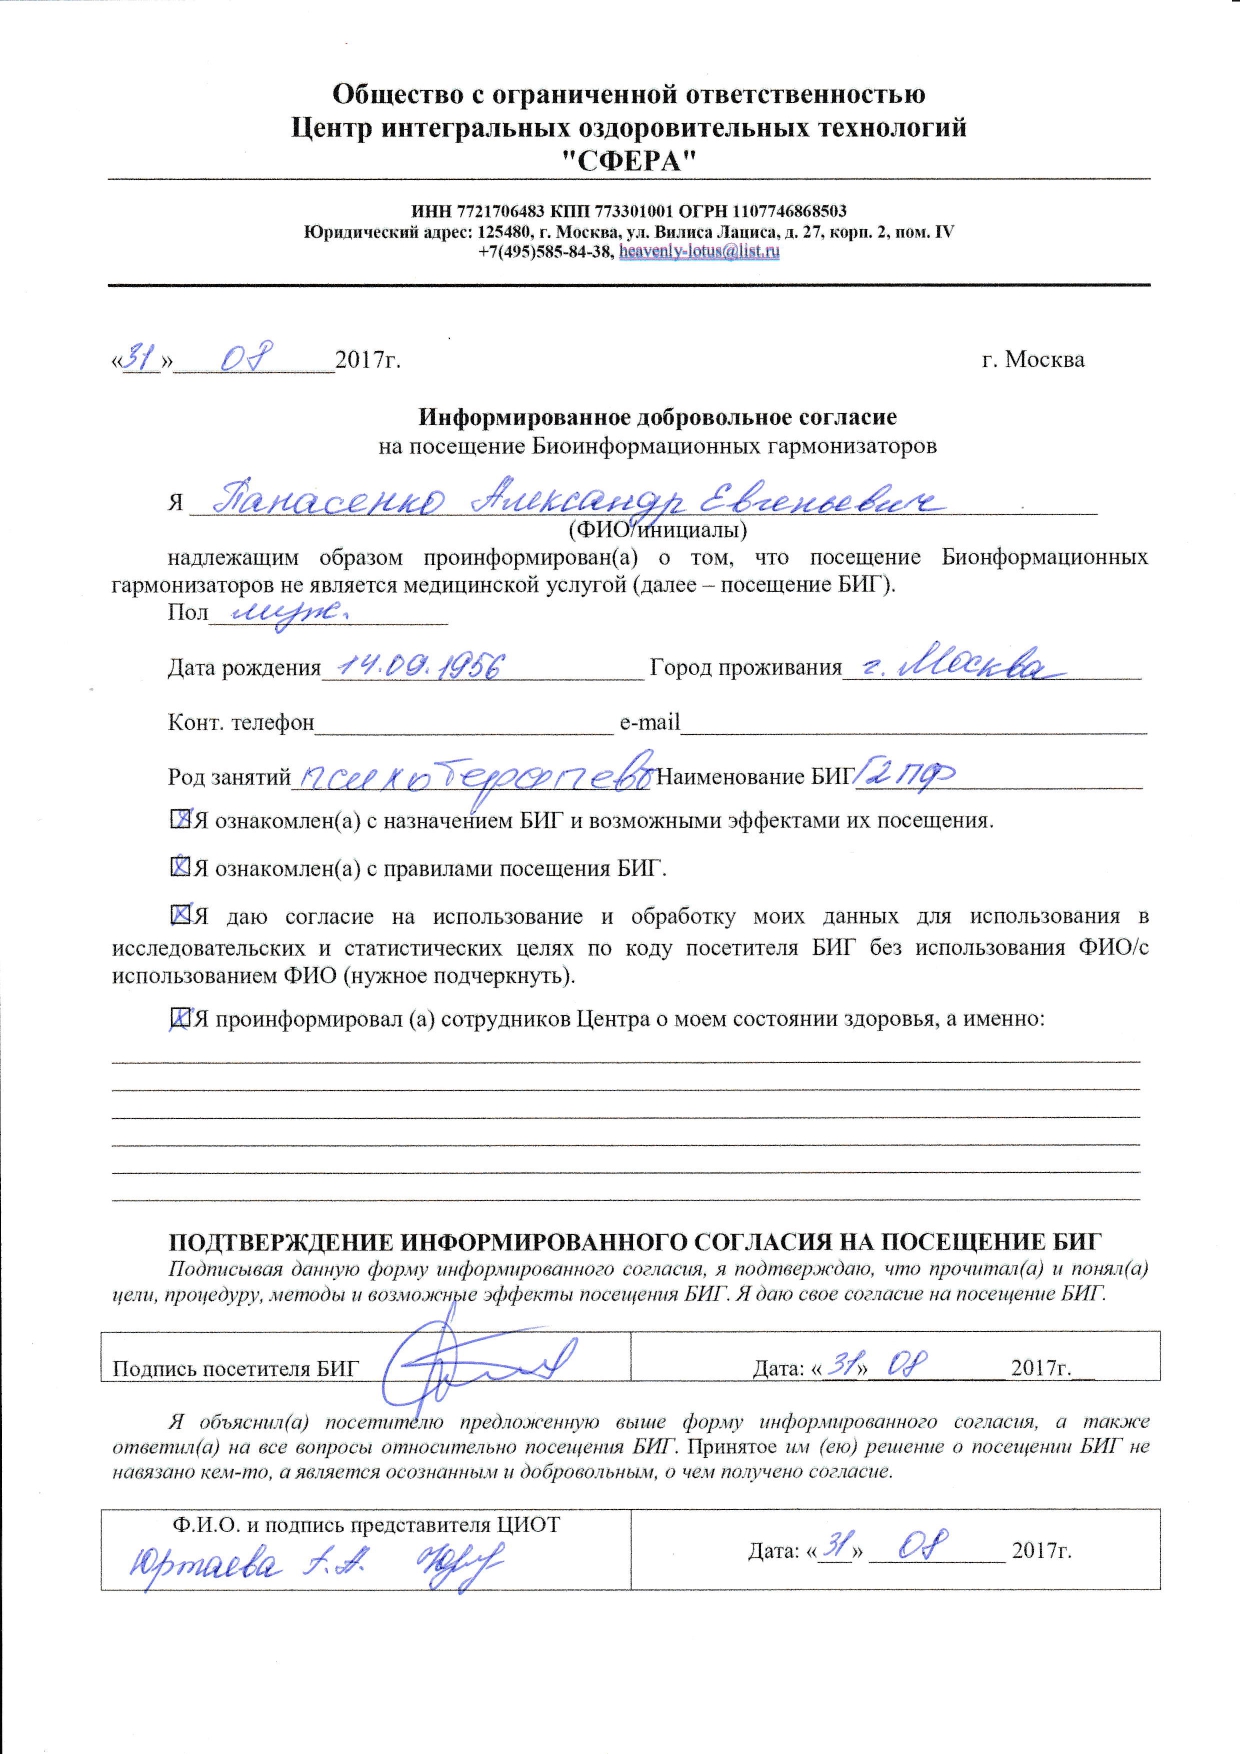 Общество с ограниченной ответственностью
Центр интегральных оздоровительных технологий
"СФЕРА"
ИНН 7721706483 КПП 773301001 ОГРН 1107746868503
Юридический адрес: 125480, г. Москва, ул. Вилиса Лациса, д. 27, корп. 2, пом. IV
+7(495)585-84-38, heavenly-lotus@list.ru
«31» 08 2017г. г. Москва
Информированное добровольное согласие
на посещение Биоинформационных гармонизаторов
Я Панасенко Александр Евгеньевич
(ФИО/инициалы)
надлежащим образом проинформирован(а) о том, что посещение Бионформационных
гармонизаторов не является медицинской услугой (далее – посещение БИГ).
Пол муж.
Дата рождения 14.09.1956 Город проживания г. Москва
Конт. телефон e-mail
Род занятий психотерапевт Наименование БИГ Г2ПФ
Я ознакомлен(а) с назначением БИГ и возможными эффектами их посещения.
Я ознакомлен(а) с правилами посещения БИГ.
Я даю согласие на использование и обработку моих данных для использования в
исследовательских и статистических целях по коду посетителя БИГ без использования ФИО/с
использованием ФИО (нужное подчеркнуть).
Я проинформировал (а) сотрудников Центра о моем состоянии здоровья, а именно:
ПОДТВЕРЖДЕНИЕ ИНФОРМИРОВАННОГО СОГЛАСИЯ НА ПОСЕЩЕНИЕ БИГ
Подписывая данную форму информированного согласия, я подтверждаю, что прочитал(а) и понял(а)
цели, процедуру, методы и возможные эффекты посещения БИГ. Я даю свое согласие на посещение БИГ.
Подпись посетителя БИГ Дата: «31» 08 2017г.
Я объяснил(а) посетителю предложенную выше форму информированного согласия, а также
ответил(а) на все вопросы относительно посещения БИГ. Принятое им (ею) решение о посещении БИГ не
навязано кем-то, а является осознанным и добровольным, о чем получено согласие.
Ф.И.О. и подпись представителя ЦИОТ
Юртаева Г.А. Дата: «31» 08 2017г.